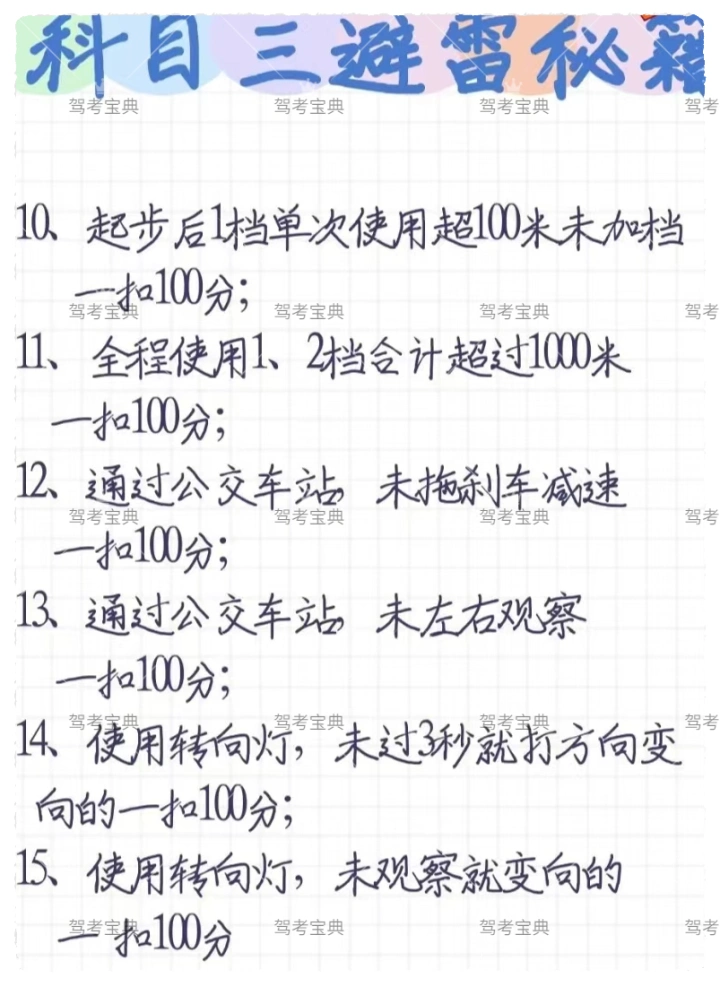 科目三避雷秘籍
驾考宝典 驾考宝典 驾考宝典 驾考
10、起步后1档单次使用超100米未加档
一扣100分；
驾考宝典 驾考宝典 驾考宝典 驾考
11、全程使用1、2档合计超过1000米
一扣100分；
12、通过公交车站，未拖刹车减速
驾考宝典 驾考宝典 驾考宝典 驾考
一扣100分；
13、通过公交车站，未左右观察
一扣100分；
驾考宝典 驾考宝典 驾考宝典 驾考
14、使用转向灯，未过3秒就打方向变
向的一扣100分；
15、使用转向灯，未观察就变向的
驾考宝典 驾考宝典 驾考宝典 驾考
一扣100分